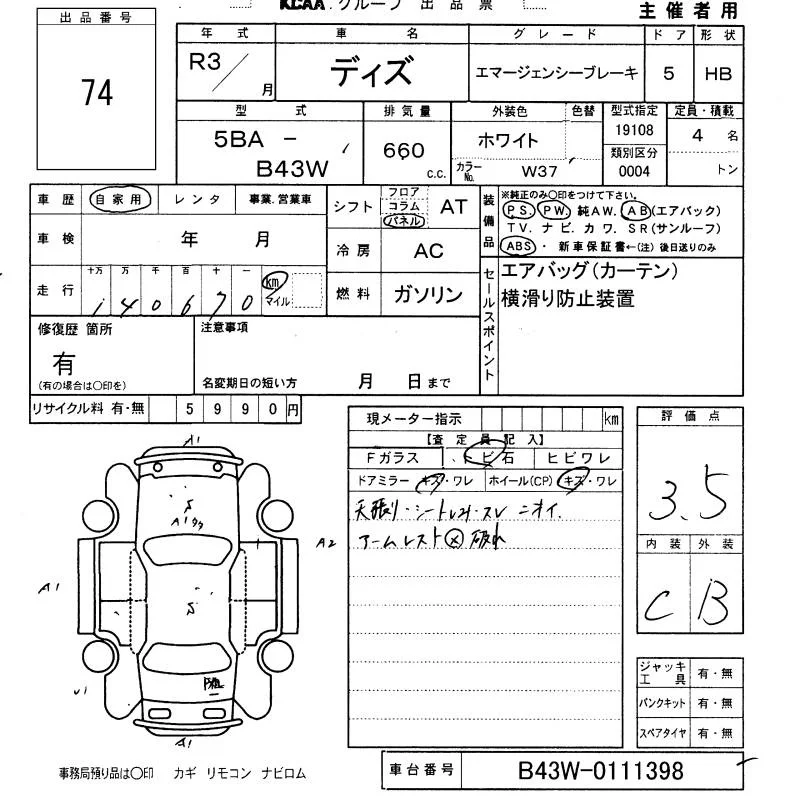 KCAA グループ 出品票
主催者用
出品番号
74
年式 車名 グレード ドア 形状
R3/ 月 ディズ エマージェンシーブレーキ 5 HB
型式 排気量 外装色 色替 型式指定 定員・積載
5BA - B43W 660 C.C. ホワイト 19108 4 名
カラーNo. W37 類別区分 0004 トン
車歴 自家用 レンタ 事業.営業車
シフト フロア コラム パネル AT
装備品 ※純正のみ〇印をつけて下さい。
PS. PW. 純AW. AB(エアバック)
TV. ナビ. カワ. SR(サンルーフ)
ABS・新車保証書←(注)後日送りのみ
車検 年 月
冷房 AC
走行 十万 万 千 百 十 一
1 4 0 6 7 0 km マイル
燃料 ガソリン
セールスポイント
エアバッグ(カーテン)
横滑り防止装置
修復歴 箇所
有
(有の場合は〇印を)
注意事項
名変期日の短い方 月 日まで
リサイクル料 有・無 5990円
現メーター指示 km
【査定員記入】
Fガラス トビ石 ヒビワレ
ドアミラー キズ・ワレ ホイール(CP) キズ・ワレ
天張り・シート スレ ニオイ.
アームレスト 破れ
評価点
3.5
内装 外装
C B
ジャッキ工具 有・無
パンクキット 有・無
スペアタイヤ 有・無
A1
S
A1
A2
A1
S
U1
A1
事務局預り品は〇印 カギ リモコン ナビロム
車台番号 B43W-0111398